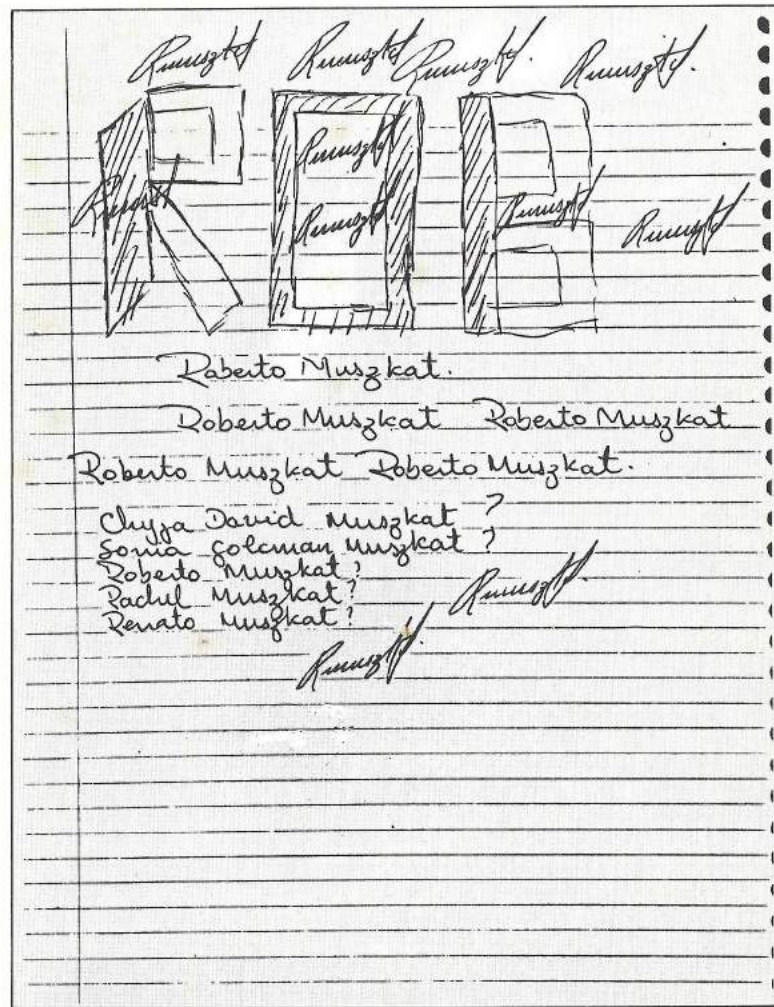 Rmuszkt Rmuszkt Rmuszkt. Rmuszkt.
ROB
Rmuszkt
Rmuszkt
Rmuszkt Rmuszkt Rmuszkt
Roberto Muszkat.
Roberto Muszkat Roberto Muszkat
Roberto Muszkat Roberto Muszkat.
David Muszkat ?
Sonia Golcman Muszkat ?
Roberto Muszkat?
Muszkat?
Renato Muszkat?
Rmuszkt.
Rmuszkt.